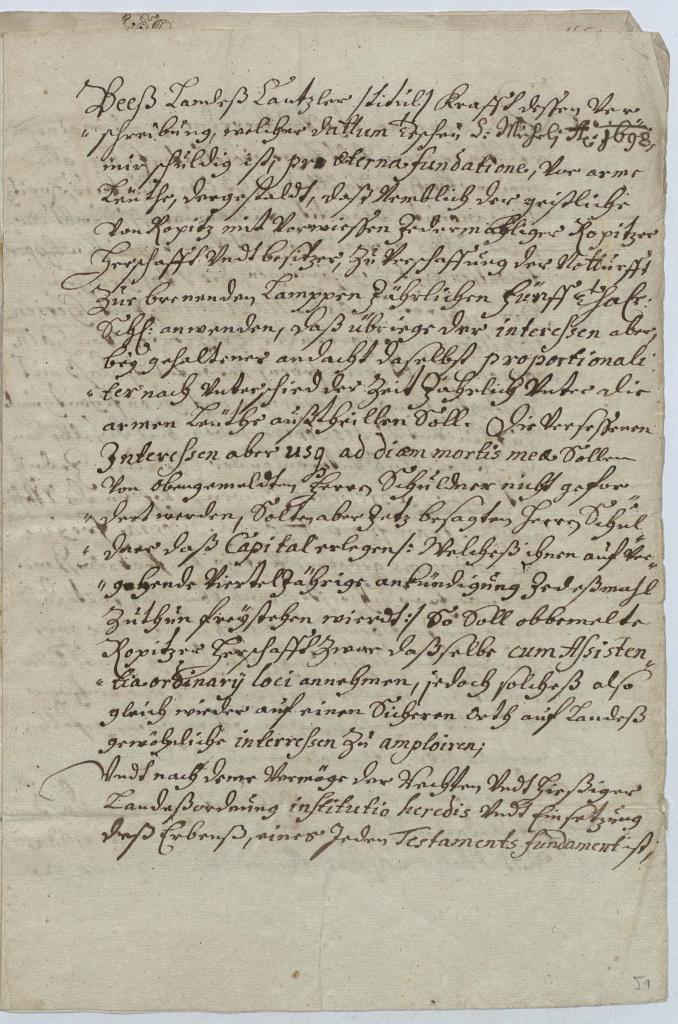 Beeß Landeß Cantzler |:titul:| Krafft dessen Ver=
=schreibung, welcher dattum Teschen S: Michely Ao: 1698,
mir schuldig ist, pro æterna fundatione, vor arme
Leüthe, dergestaldt, daß Nemblich der geistliche
von Ropitz mit Vorwiessen Jedermahliger Ropitzer
Herschafft Vndt besitzer, Zu Verschaffung der Notturfft
Zur brenenden Lamppen Jährlichen fünff Thaler:
Schl: anwenden, daß übriege der interessen aber,
bey gehaltener andacht daselbst proportionali=
=ter nach Vnterschied der Zeit Jährlich Vnter die
armen Leüthe außtheillen Soll. Die Versessenen
Interessen aber usq ad diem mortis meæ Sollen
Von obengemeldten Herrn Schuldner nicht gefor=
=dert werden, Solten aber Jetz besagten Herrn Schul=
=dner daß Capital erlegen |: Welcheß ihnen auf Vor=
=gehende Viertel Jährige ankündigung Jedeßmahl
Zuthun freystehen wierdt :| So Soll obbemelte
Ropitzer Herschafft Zwar daßselbe cum Assisten=
=tia ordinarÿ loci annehmen, jedoch solcheß also
gleich wieder auf einen Sicheren orth auf Landeß
gewöhnliche interressen Zu amploiren;
Vndt nach deme Vermöge der Rechten Vndt hießiger
Landeßordnung institutio heredis Vndt Einsetzung
deß Erbenß, eines Jeden Testaments fundament ist,
51